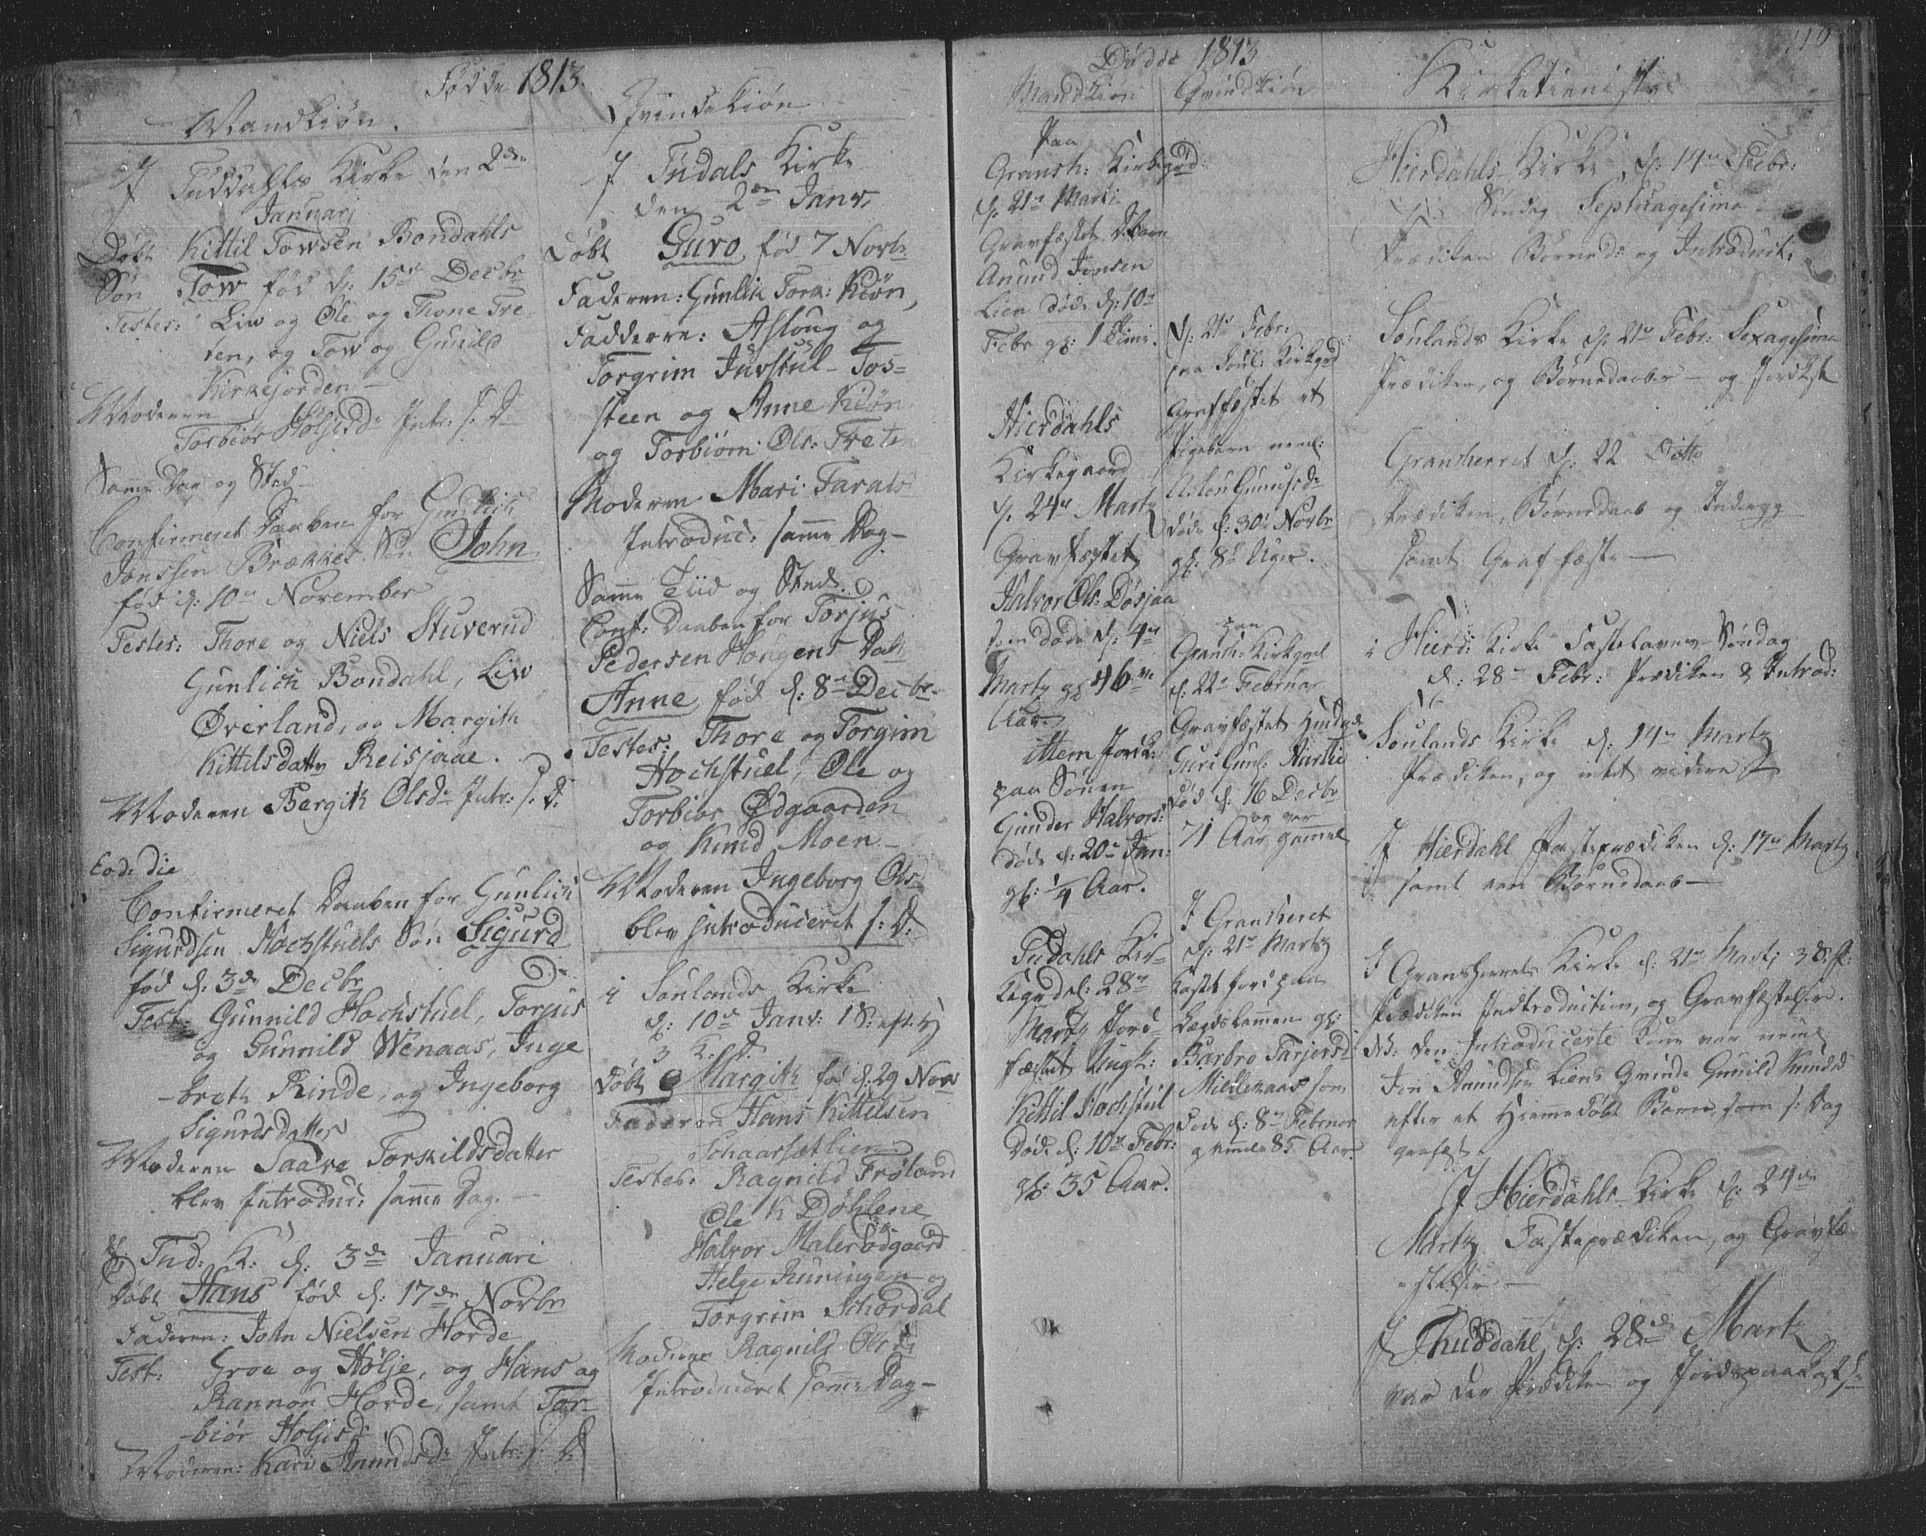 Fødde 1813.
Mandkiøn.
I Tuddahls Kirke den 2den
Januarj
Døbt Kittil Towsen Bondahls
Søn Tow fød d: 15de Decbr
Testes: Liw og Ole og Thone Tre
ten, og Tow og Gunild
Kirkejorden –
Moderen
Torbiør Höljesd. Intr: s. D
Samme Dag og Sted –
Confirmeret Daaben for Gunlich
Jonssen Brækkes Søn John
fød d: 10de November
Testes: Thore og Niels Stuverud
Gunlich Bondahl, Liw
Øverland, og Margith
Kittilsdattr Reisjaae.
Moderen Bergith Olsdr Intr: s. D.
Eode die
Confirmeret Daaben for Gunlich
Sigurdsen Hochstuels Søn Sigurd
fød d. 3de Decbr
Test: Gunnild Hochstuel, Torjus
og Gunnild Wenaas, Inge
breth Rinde, og Ingeborg
Sigurdsdatter
Moderen Saave Torskildsdatter
blev Introduc: samme Dag. –
I Tud: K: d. 3de Januari
Døbt Hans fød d. 17de Novbr
Faderen: John Nielsen Horde
Test: Groe og Hölje, og Hans og
Rannou Horde, samt Tor-
biör Holjesd
Moderen: Kari Amundsdr Intr: s. D
Qvindekiøn
I Tudals Kirke
den 2den Janv.
Døbt Guro fød 7 Novbr
Faderen: Gunlik Tork: Kiøn,
Fadderne: Aslöug og
Torgrim Juvstul – Tos-
steen og Anne Kiøn
og Torbiörn Ols: Treten
Moderen Mari Tarals
Introduc: samme Dag –
Samme Tiid og Sted.
Conf: Daaben for Torjus
Pedersen Haugens Datt
Anne fød d. 8de Decbr.
Testes: Thore og Torgim
Hochstuel, Ole og
Torbiør Ødgaarden
og Knud Moen –
Moderen Ingeborg Ols
blev introduceret s: D.
i Sönlands Kirke
d: 10de Janv: 1 S: eft: H
3 K. D.
Døbt Margith fød d. 29 Nov
Faderen Hans Kittilsen
Schaarsætlien
Testes: Ragnild Frøland
Ole K Döhlene
Halvor Malerødgaard
Helge Runingen og
Torgrim Schordal
Moderen Ragnild Olsdr
Introduceret samme Dag –
Dødde 1813
Mandkiøn
Paa
Gransh: Kirkegrd:
d. 21de Marti
Gravfæstet
Anund Jonsen
Lien døde d: 10de
Febr gl: 1 Time.
Hierdahls
Kirkegaard
d. 24de Martz
Gravfæstet
Halvor Ols: Dösjaa
som døde d. 4de
Martz gl 46
Aar.
Item Jordk:
paa Sönen
Gunder Halvors:
døde d: 20de Jan:
gl: 1/4 Aar.
Tudahls Kir-
kegrd d: 28de
Martz Jord-
fæstet Ungk:
Kittil Hochstul
Døde d. 10de Febr:
gl: 35 Aar.
Qvindkiøn
d. 21de Febr:
paa Sönl: Kirkgrd
Graffæstet et
Pigebarn neml:
Aslou Gunufsdr
døde d. 30de Novbr
gl: 8te Uger.
paa
Gransh: Kirkgrd
d. 22de Februar
Gravfæstet
Guri Gunl: Hartie
død d. 16 Decbr
og var
71 Aar gammel
I Gransheret
d. 21de Martz
Kastet Jord paa
Lægdslemmen gl:
Barbro Tarjersd
Miellenaas som
døde d: 8de Februar
gammel 85 Aar.
Kirketieniste
Hierdahls Kirke, d. 14de Febr:
Söndag Septuagesima
Prædiken Børned: og Introduct:
Sönlands Kirke d: 21de Febr: Sexagesima
Prædiken, og Børnedaaber – og Jordkst
Gransherret d. 22 Ditto
Prædiken, Børnedaab og Indgg
samt Graffæste –
i Hierd: Kirke Fastelavns Søndag
d: 28de Febr: Prædiken & Introd:
Sönlands Kirke d: 14de Martz
Prædiken, og intet videre
I Hierdahl Fasteprædiken d. 17de Martz
samt een Børnedaab –
I Gransherrets Kirke d. 21de Marti 3 S. f:
Prædiken Indtroduction, og Gravfæstelse.
NB: den Introducerte Kone var neml
Jon Anundsen Liens Qvinde Gunild Knuds
efter et Hiemmedøbt Barn, som s: Dag
grafæst.
I Hierdahls Kirke d: 24de
Martz Fasteprædiken, og Gravfæ-
stelse –
I Thuddahl d. 28de Martz
var der Prædiken og Jordspaakastelse